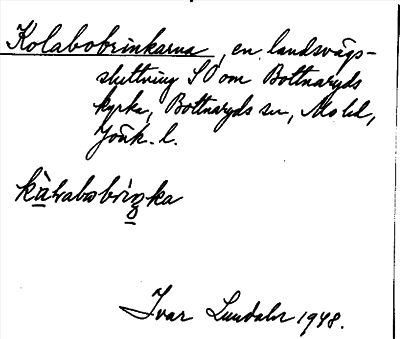 Kolabobrinkarna, en landsvägs-
sluttning SO om Bottnaryds
kyrka, Bottnaryds sn, Mo hd,
Jönk. l.
Ivar Lundahl 1948.